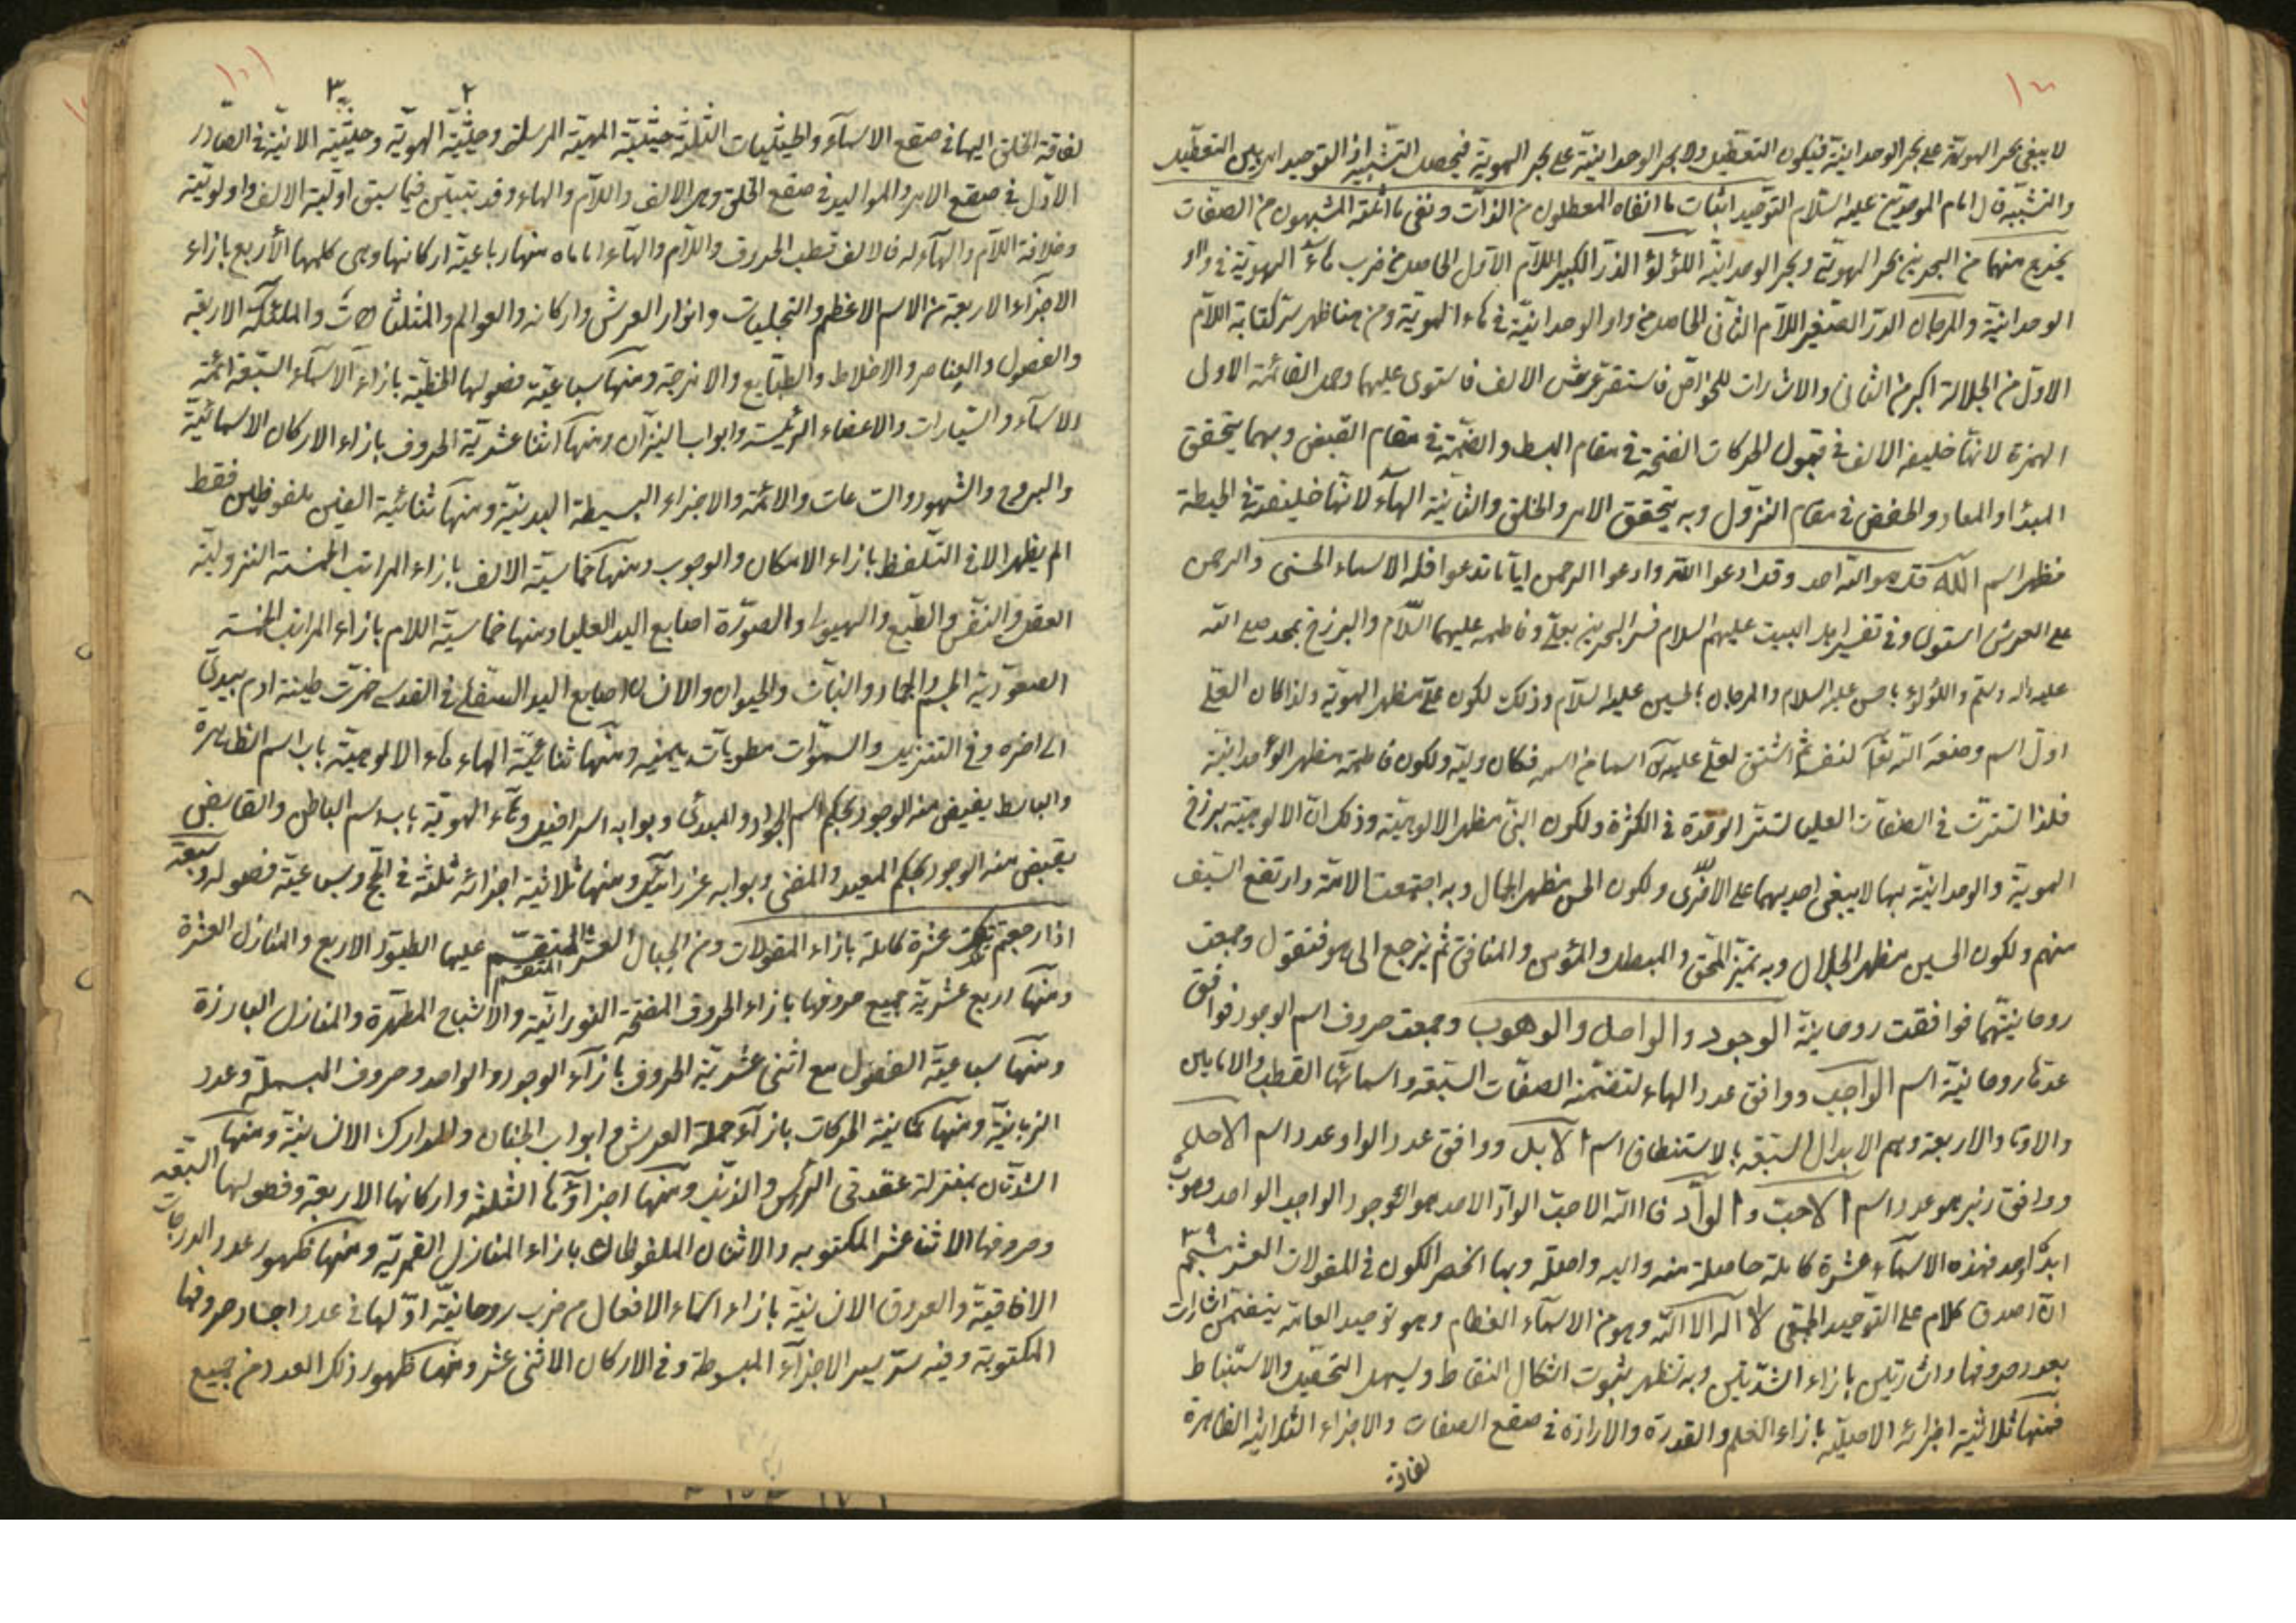 لا يبغى بحر الهوية على بحر الوحدانية فيكون التعطيل ولا بحر الوحدانية على بحر الهوية فيحصل التشبيه اذ التوحيد امر بين التعطيل
والتشبيه قال امام الموحدين عليه السلام التوحيد اثبات ما انفاه المعطلون من الذات ونفى ما اثبته المشبهون من الصفات
يخرج منهما من البحرين بحر الهوية وبحر الوحدانية اللؤلؤ الدر الكبير اللام الاول الحاصل من ضرب هاء الهوية في واو
الوحدانية والمرجان الدر الصغير اللام الثاني الحاصل من واو الوحدانية في هاء الهوية ومن هنا ظهر سر كتابة اللام
الاول من الجلالة اكبر من الثاني والاشارات للخواص فاستقر عرش الالف فاستوى عليهما وجد القائمة الاولى
الهمزة لانها خليفة الالف في قبول الحركات الفتحة في مقام البسط والضمة في مقام القبض وبهما يتحقق
المبدا والمعاد والخفض في مقام النزول وبه يتحقق الامر والخلق والثانية الهاء لانها خليفته في الحيطة
فظهر اسم الله قل هو الله احد وقل ادعوا الله وادعوا الرحمن ايا ما تدعوا فله الاسماء الحسنى والرحمن
على العرش استوى وفي تفسير اهل البيت عليهم السلام فسر البحرين بعلي وفاطمة عليهما السلام والبرزخ بمحمد صلى الله
عليه واله وسلم واللؤلؤ بالحسن عليه السلام والمرجان بالحسين عليه السلام وذلك لكون علي مظهر الهوية ولذا كان العلي
اول اسم وضعه الله تعالى لنفسه ثم اشتق لعلي عليه اسما من اسمه فكان وليه ولكون فاطمة مظهر الواحدانية
فلذا تسترت في الصفات العليا لتستر الوحدة في الكثرة ولكون النبي مظهر الالوهية وذلك ان الالوهية برزخ
الهوية والوحدانية بها لا يبغى احديهما على الاخرى ولكون الحسن مظهر الجمال وبه اجتمعت الامة وارتفع السيف
منهم ولكون الحسين مظهر الجلال وبه تميز المحق والمبطل والمؤمن والمنافق ثم نرجع الى هو فنقول وجمعت
روحانيتهما فوافقت روحانية الوجود والواصل والوهوب وجمعت حروف اسم الوجود فوافق
عدتها روحانية اسم الواجب ووافق عدد الهاء لتضمنه الصفات السبعة واسمائها القطب والامامين
والاوتاد الاربعة وهم الابدال السبعة بالاستنطاق اسم الابل ووافق عدد الواو عدد اسم الاجل
ووافق زبر هو عدد اسم الاحب والواد فالله الاحب الواد الاحد هو الوجود الواجب الواحد وهوب
ابدا وحد فهذه الاسماء عشرة كاملة حاصلة منه واليه واصلة وبها انحصر الكون في المقولات العشر
ان اصدق كلام على التوحيد الحقيقي لا اله الا الله وهو من الاسماء العظام وهو توحيد العامة يتضمن اشارات
بعدد حروفها واشارتين بازاء الشدتين وبه تظهر بثبوت اشكال النقاط ويسهل التحقيق والاستنباط
فمنها ثلاثية اجزائه الاصلية بازاء العلم والقدرة والارادة في صقع الصفات والاجزاء الثلاثية الظاهرة
لفاقة
لفاقة الخلق اليها في صقع الاسماء والحيثيات الثلثة حيثية المهية المرسلة وحيثية الهوية وحيثية الانية في الصادر
الاول في صقع الامر والمواليد في صقع الخلق وهي الالف واللام والهاء وقد تبين فيما سبق اولية الالف واولوتيته
وخلافة اللام والهاء له فالالف قطب الحروف واللام والهاء اماماه منها رباعية اركانها وهي كلمها الاربع بازاء
الاجزاء الاربعة من الاسم الاعظم والتجليات وانوار العرش واركانه والعوالم والمثلثات والملئكة الاربعة
والفصول والعناصر والاخلاط والطبايع والامزجة ومنها سباعية فصولها الخطية بازاء الاسماء السبعة ائمة
الاسماء والسيارات والاعضاء الرئيسة وابواب النيران ومنها اثناعشرية الحروف بازاء الاركان الاسمائية
والبروج والشهور والساعات والائمة والاجزاء البسيطة البدنية ومنها ثنائية الفين ملفوظين فقط
لم يظهر الا في التلفظ بازاء الامكان والوجوب ومنها خماسية الالف بازاء المراتب الخمسة النزولية
العقل والنفس والطبع والهيولى والصورة اصابع اليد العليا ومنها خماسية اللام بازاء المراتب الخمسة
الصعودية الجسم والجماد والنبات والحيوان والانسان اصابع اليد السفلى في القدسي خمرت طينة ادم بيدي
الى اخره وفي التنزيل والسموات مطويات بيمينه ومنها ثنائية الهاء هاء الالوهية باب اسم الظاهر
والباسط يفيض منه الوجود بحكم اسم الجواد والمبدئ وبوابه اسرافيل وهاء الهوية باب اسم الباطن والقابض
يقبض منه الوجود بحكم المعيد والمفنى وبوابه عزرائيل ومنها ثلاثية اجزائه ثلثة في الحج وسباعية فصوله وسبعة
اذا رجعتم تلك عشرة كاملة بازاء المقولات ومن الجبال العشر المنقسم عليها الطيور الاربع والمنازل العشرة
ومنها اربع عشرية جميع حروفها بازاء الحروف المفتحة النورانية والاشباح المطهرة والمنازل البارزة
ومنها سباعية الفصول مع اثنى عشرية الحروف بازاء الوجود والواحد وحروف البسملة وعدد
الزبانية ومنها ثمانية الحركات بازاء حملة العرش وابواب الجنان والمدارك الانسانية ومنها
الشدتان بمنزلة عقدتي الراس والذنب ومنها اجزاؤها الثلثة واركانها الاربعة وفصولها السبعة
وحروفها الاثنا عشر المكتوبه والاثنان الملفوظان بازاء المنازل القمرية ومنها ظهور عدد الدرجات
الافاقية والعروق الانسانية بازاء اسماء الافعال من ضرب روحانية اولها في عدد اجساد حروفها
المكتوبة وفيه سر يسير الاجزاء المبسوطة وفي الاركان الاثنى عشر ومنها ظهور ذلك العدد من جميع